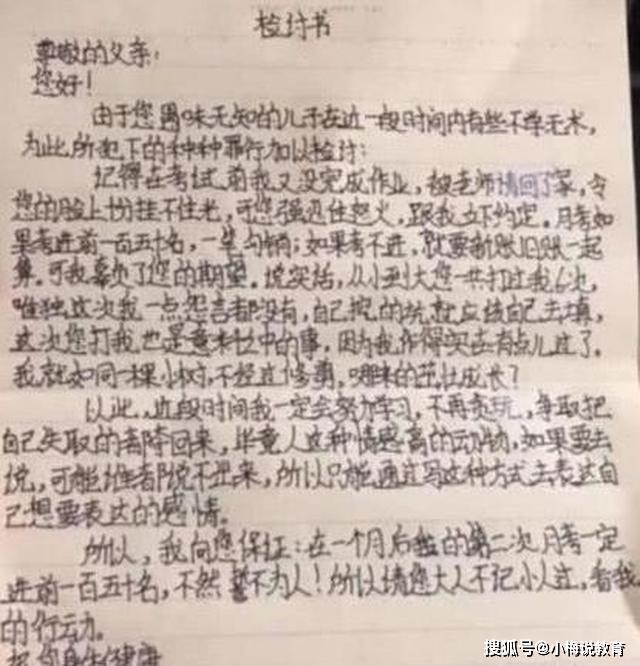 检讨书
尊敬的父亲:
您好!
由于您愚昧无知的儿子在这一段时间内有些不学无术,
为此所犯下的种种罪行加以检讨:
记得在考试前我又没完成作业,被老师请回了家,令
您的脸上份挂不住光,可您强迅住怒火,跟我立下约定。月考如
果考进前一百五十名,一笔勾销;如果考不进,就要新账旧账一起
算。可我辜负了您的期望。说实话,从小到大您一共打过我6次,
唯独这次我一点怨言都没有,自己挖的坑就应该自己去填,
这次您打我也是意料之中的事,因为我作得实在有点儿过了。
我就如同一棵小树,不经过修剪,哪来的茁壮成长?
以此,这段时间我一定会努力学习,不再贪玩,争取把
自己失去的都夺回来,毕竟人这种情感高的动物,如果要去
说,可能谁都说不出来,所以只能通过写这种方式去表达自
己想要表达的感情。
所以,我向您保证:在一个月后的第二次月考一定
进前一百五十名,不然誓不为人!所以请您大人不记小人过,看我
的行动。
祝您身体健康
搜狐号@小梅说教育